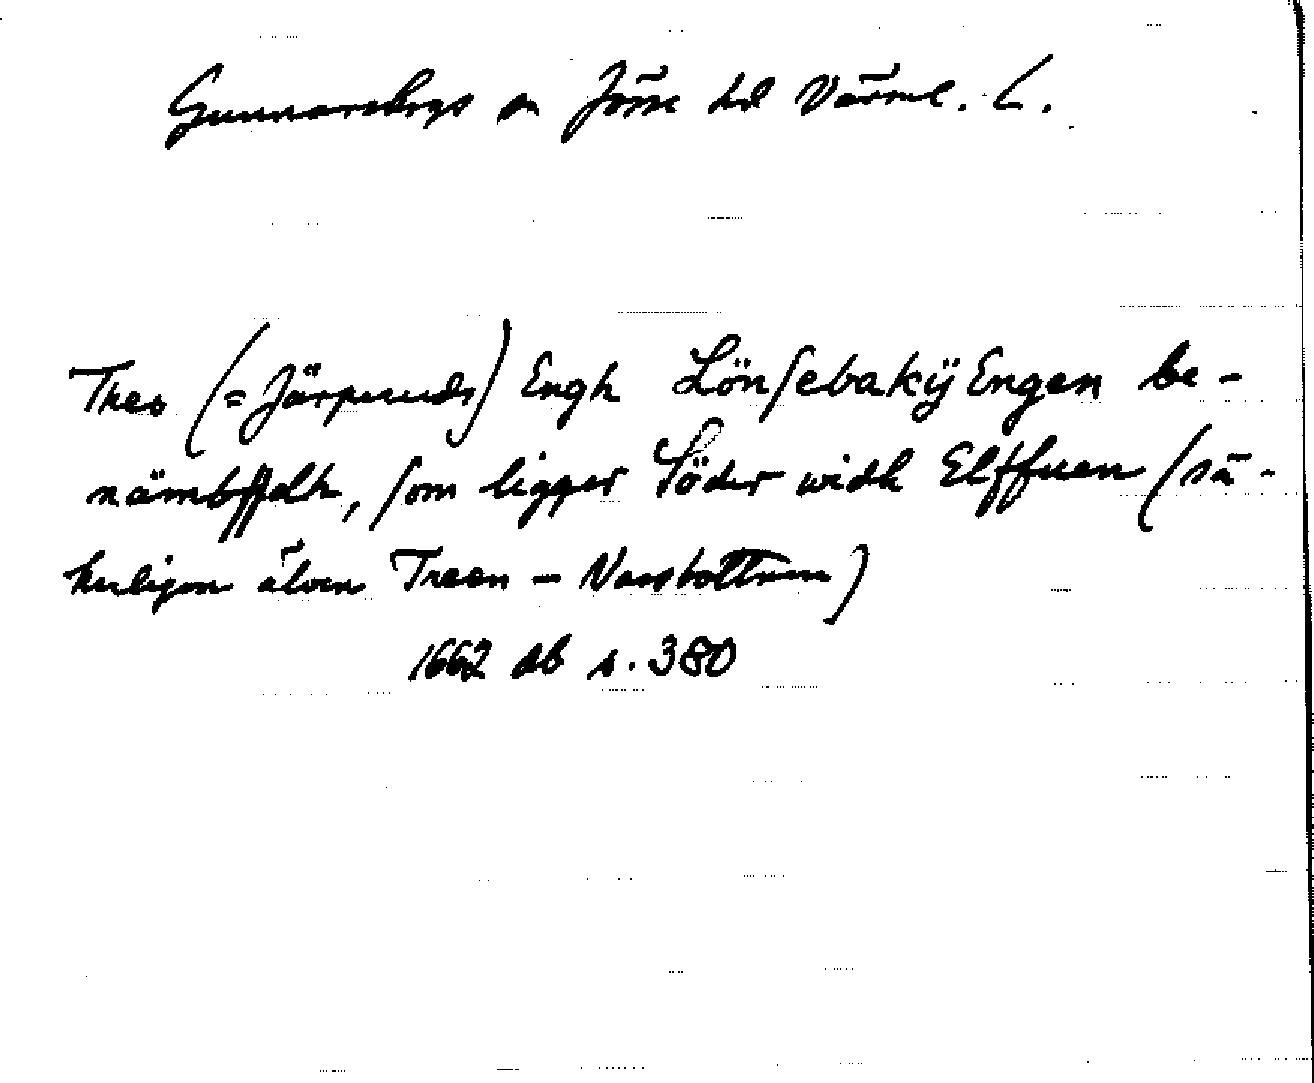 Gunnarskogs sn Jösse hd Värml. L.
Thes (= Järpemds) Engh Lönsebakÿ Engen be-
nämbdh, som ligger Söder widh Elffuen (sä-
kerligen älven Treen - Nassbottnen)
1662 db s. 380